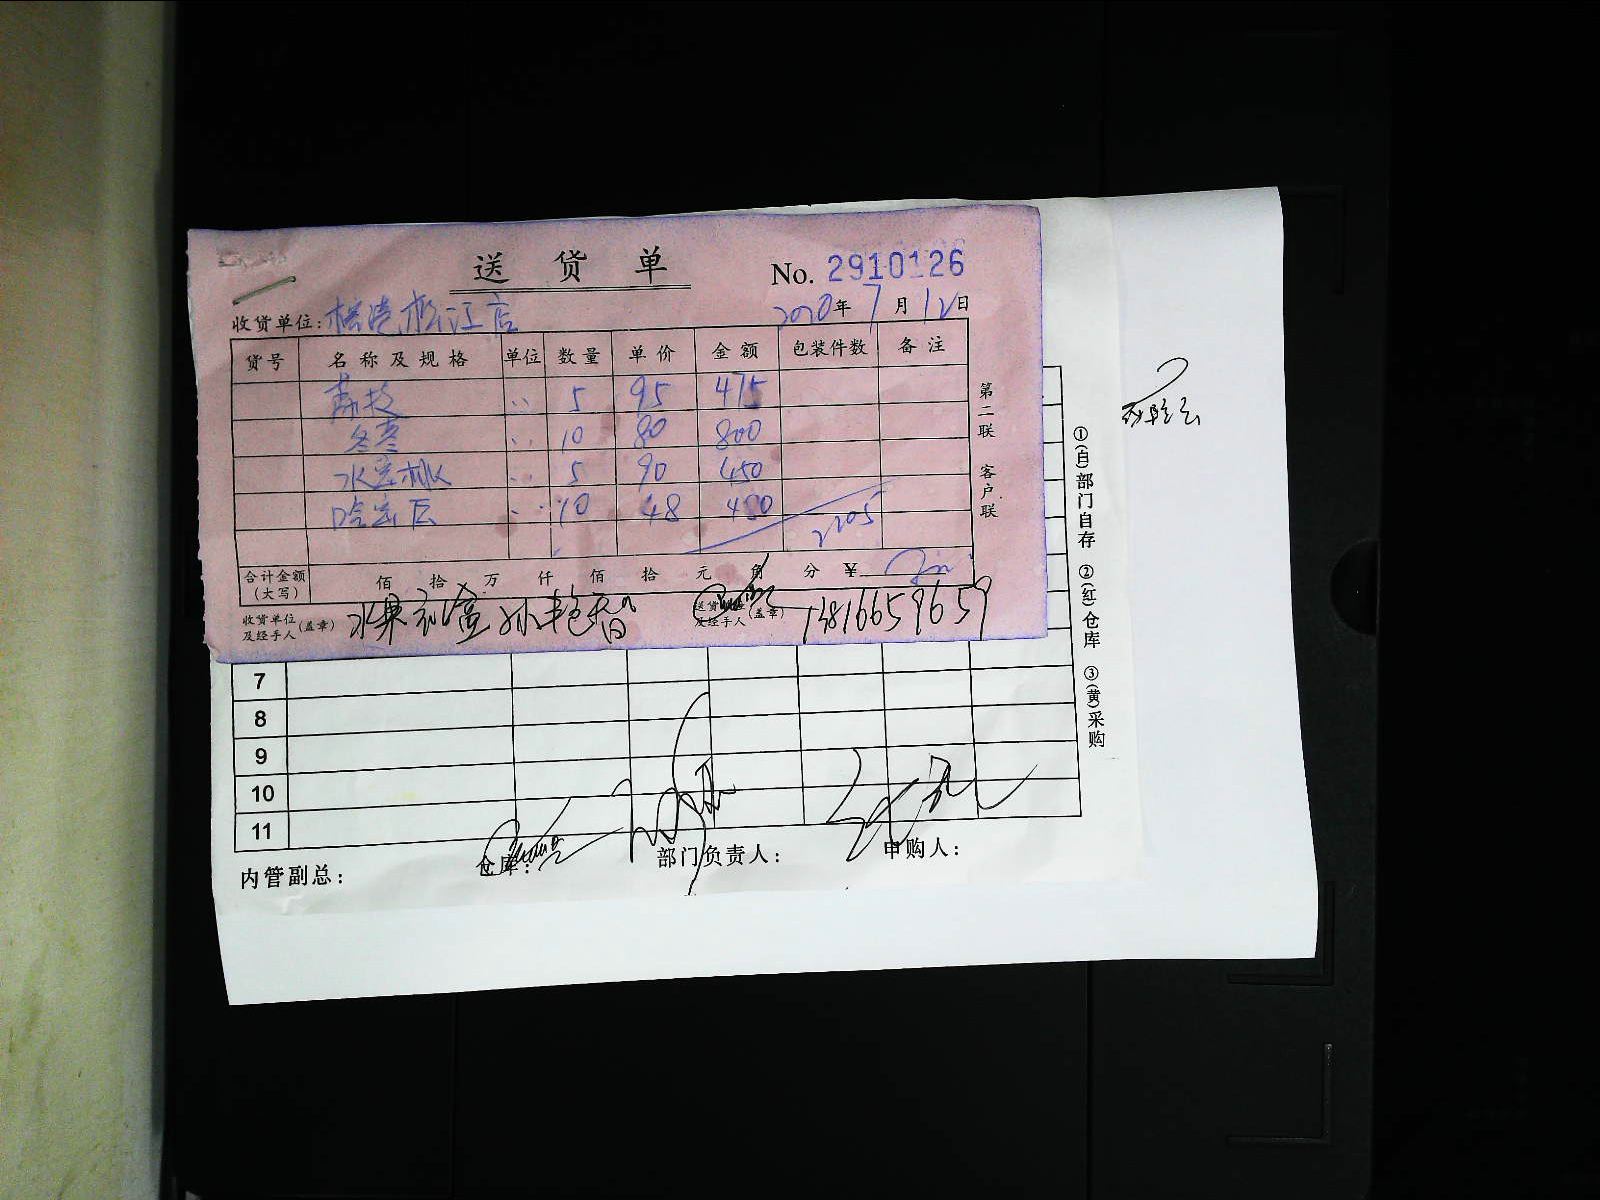 送货单
No. 2910126
收货单位: 松江店
2020年7月12日
货号 名称及规格 单位 数量 单价 金额 包装件数 备注
荔枝 5 95 475
冬枣 10 80 800
水蜜桃 5 90 450
哈密瓜 10 48 480
2205
合计金额(大写) 佰 拾 万 仟 佰 拾 元 角 分 ¥
收货单位及经手人(盖章) 水果
送货单位及经手人(盖章) 13816659659
第二联 客户联
7
8
9
10
11
内管副总: 仓库: 部门负责人: 申购人:
①(白)部门自存 ②(红)仓库 ③(黄)采购